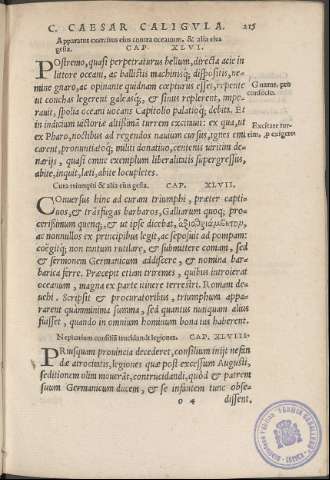 C. CAESAR CALIGVLA. 215
Apparatus exercitus eius contra oceanum. & alia eius
gesta. CAP. XLVI.
POstremo, quasi perpetraturus bellum, directa acie in
littore oceani, ac ballistis machinisq; dispositis, ne-
mine gnaro, ac opinante quidnam cœpturus esset, repente
ut conchas legerent galeasq;, & sinus replerent, impe-
rauit, spolia oceani uocans Capitolio palatioq; debita. Et
in indicium uictoriæ altissimā turrem excitauit: ex qua, ut
ex Pharo, noctibus ad regendos nauium cursus, ignes emi
carent, pronuntiatoq; militi donatiuo, centenis uiritim de-
narijs, quasi omne exemplum liberalitatis supergressus,
abite, inquit, læti, abite locupletes.
Gnarus, pro
Excitare tur-
rim, p erigere
Cura triumphi & alia eius gesta. CAP. XLVII.
COnuersus hinc ad curam triumphi, præter capti-
uos, & trāsfugas barbaros, Galliarum quoq; pro-
cerissimum quenq;, & ut ipse dicebat, ἀξιοθριάμβευτον,
ac nonnullos ex principibus legit, ac seposuit ad pompam:
coëgitq; non tantum rutilare, & submittere comam, sed
& sermonem Germanicum addiscere, & nomina bar-
barica ferre. Præcepit etiam triremes, quibus introierat
oceanum, magna ex parte itinere terrestri Romam de-
uehi. Scripsit & procuratoribus, triumphum appa-
rarent quàm minima summa, sed quantus nunquam alius
fuisset, quando in omnium hominum bona ius haberent.
CAP. XLVIII.
PRiusquam prouincia decederet, consilium inijt nefan
dæ atrocitatis, legiones quæ post excessum Augusti,
seditionem olim mouerāt, contrucidandi, quòd & patrem
suum Germanicum ducem, & se infantem tunc obse-
o 4 dissent,